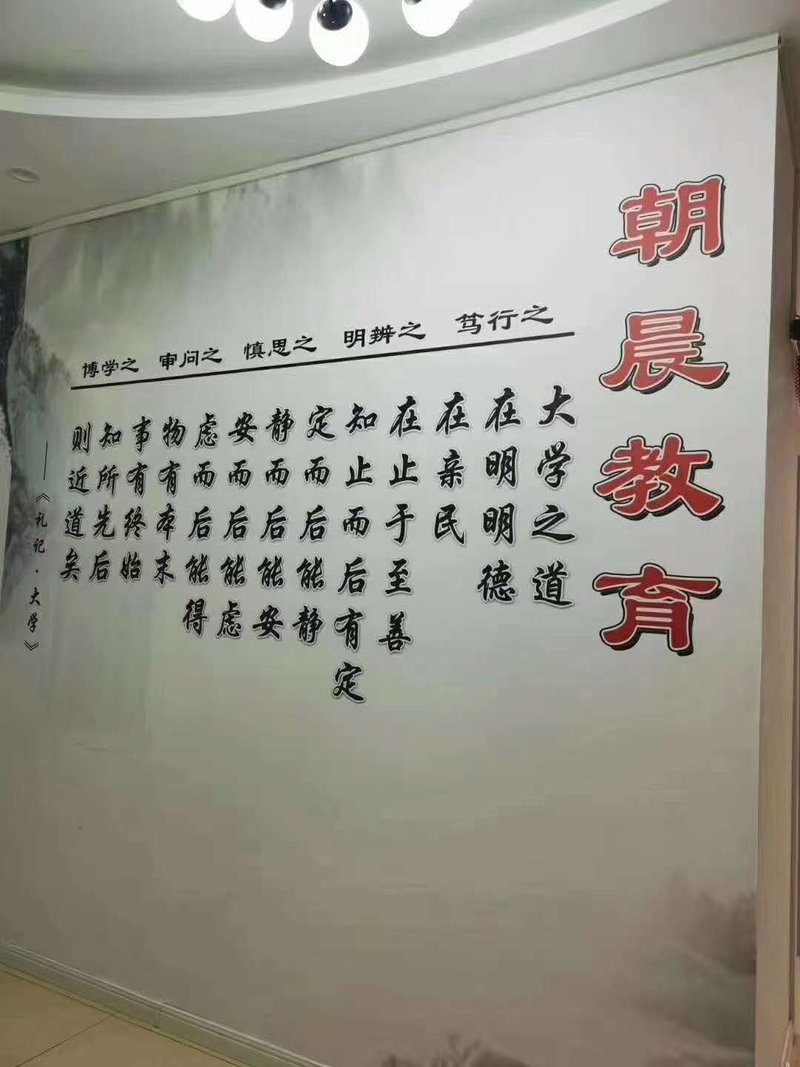 朝晨教育
博学之 审问之 慎思之 明辨之 笃行之
大学之道
在明明德
在亲民
在止于至善
知止而后有定
定而后能静
静而后能安
安而后能虑
虑而后能得
物有本末
事有终始
知所先后
则近道矣
——《礼记·大学》